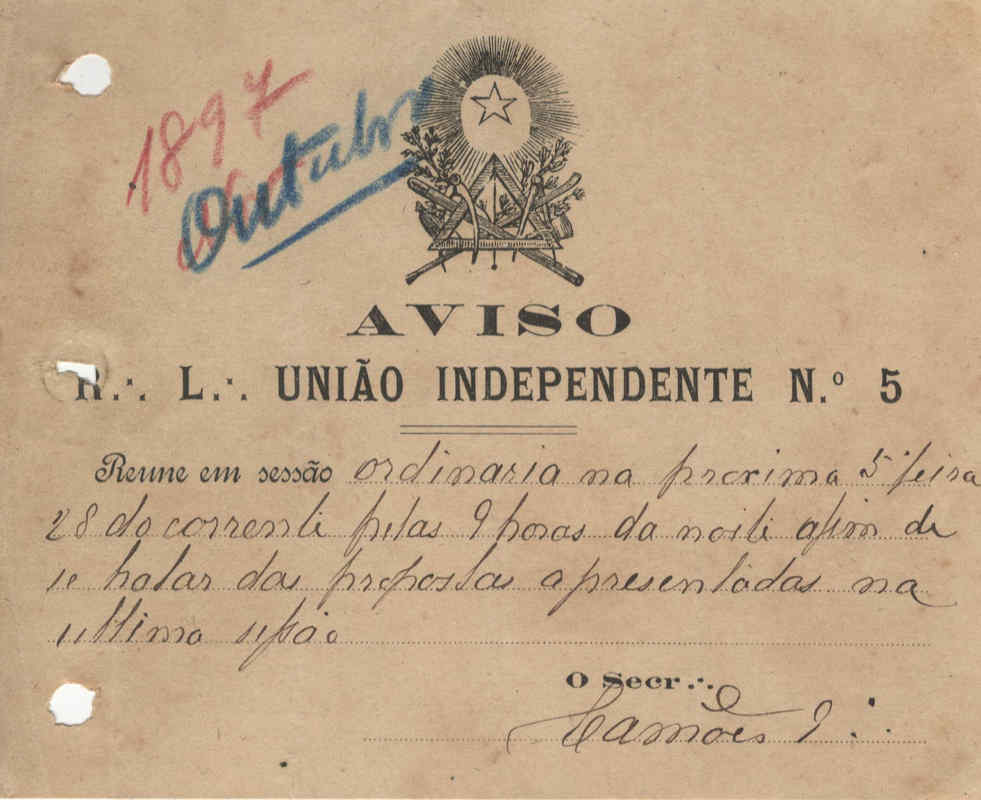 1897
Outubro
AVISO
R.∴ L.∴ UNIÃO INDEPENDENTE N.º 5
Reune em sessão ordinaria na proxima 5ª feira
28 do corrente pelas 9 horas da noite afim de
se tratar das propostas apresentadas na
ultima sessão
O Secr.∴
Camões